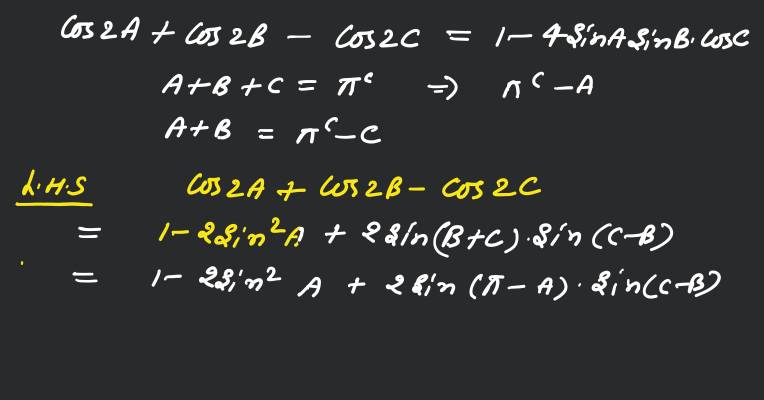 Cos2A + Cos2B − Cos2C = 1 − 4SinA SinB. CosC
A+B+C = πᶜ ⇒ πᶜ − A
A+B = πᶜ − C
L.H.S Cos2A + Cos2B − Cos2C
= 1 − 2Sin²A + 2Sin(B+C).Sin(C−B)
= 1 − 2Sin² A + 2Sin(π − A).Sin(C−B)